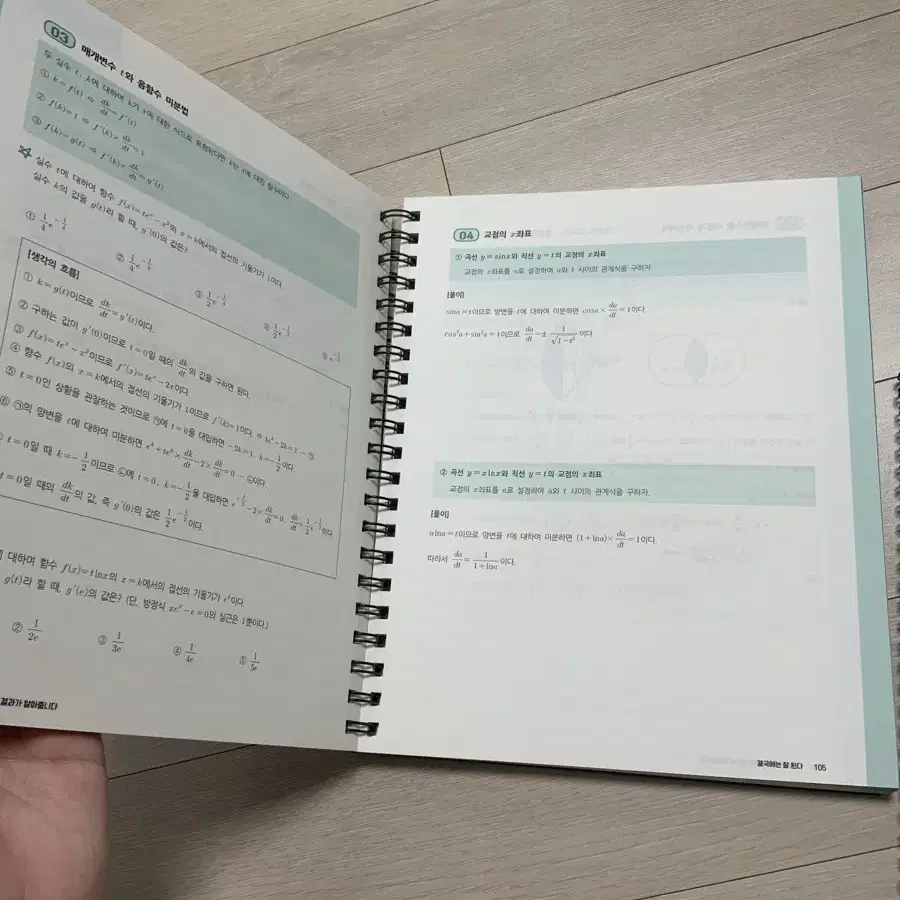 03 매개변수 t와 음함수 미분법
두 실수 t, k에 대하여 k가 t에 대한 식으로 표현된다면 k는 t에 대한 함수이다.
① k = f(t) ⇒ dk/dt = f′(t)
② f(k) = t ⇒ f′(k)× dk/dt = 1
③ f(k) = g(t) ⇒ f′(k)× dk/dt = g′(t)
실수 t에 대하여 함수 f(x) = te^x − x²의 x = k에서의 접선의 기울기가 1이다.
실수 k의 값을 g(t)라 할 때, g′(0)의 값은?
① 1/4 e^(-1/2) ② 1/4 e^(-1/2) ③ 1/2 e^(-1/2) ④ 1/2 e^(-1/2) ⑤ e^(-1/2)
[생각의 흐름]
① k = g(t)이므로 dk/dt = g′(t)이다.
② 구하는 값이 g′(0)이므로 t = 0일 때의 dk/dt의 값을 구하면 된다.
③ f(x) = te^x − x²이므로 f′(x) = te^x − 2x이다.
④ 함수 f(x)의 x = k에서의 접선의 기울기가 1이므로 f′(k) = 1이다. ⇒ te^k − 2k = 1 ⋯ ㉠
⑤ t = 0인 상황을 관찰하는 것이므로 ㉠에 t = 0을 대입하면 −2k = 1, k = −1/2이다.
⑥ ㉠의 양변을 t에 대하여 미분하면 e^k + te^k × dk/dt − 2× dk/dt = 0 ⋯ ㉡이다.
t = 0일 때 k = −1/2이므로 ㉡에 t = 0, k = −1/2을 대입하면 e^(-1/2) − 2× dk/dt = 0, dk/dt = 1/2 e^(-1/2)이다.
t = 0일 때의 dk/dt의 값, 즉 g′(0)의 값은 1/2 e^(-1/2)이다.
대하여 함수 f(x) = t ln x의 x = k에서의 접선의 기울기가 e^k이다.
g(t)라 할 때, g′(e)의 값은? (단, 방정식 xe^x − e = 0의 실근은 1뿐이다.)
② 1/2e ③ 1/3e ④ 1/4e ⑤ 1/5e
결과가 말아줍니다
04 교점의 x좌표
① 곡선 y = sinx와 직선 y = t의 교점의 x좌표
교점의 x좌표를 a로 설정하여 a와 t 사이의 관계식을 구하자.
[풀이]
sina = t이므로 양변을 t에 대하여 미분하면 cosa × da/dt = 1이다.
cos²a + sin²a = 1이므로 da/dt = ± 1/√(1−t²) 이다.
② 곡선 y = x lnx와 직선 y = t의 교점의 x좌표
교점의 x좌표를 a로 설정하여 a와 t 사이의 관계식을 구하자.
[풀이]
a lna = t이므로 양변을 t에 대하여 미분하면 (1 + lna)× da/dt = 1이다.
따라서 da/dt = 1/(1 + lna) 이다.
결국에는 잘 된다 105